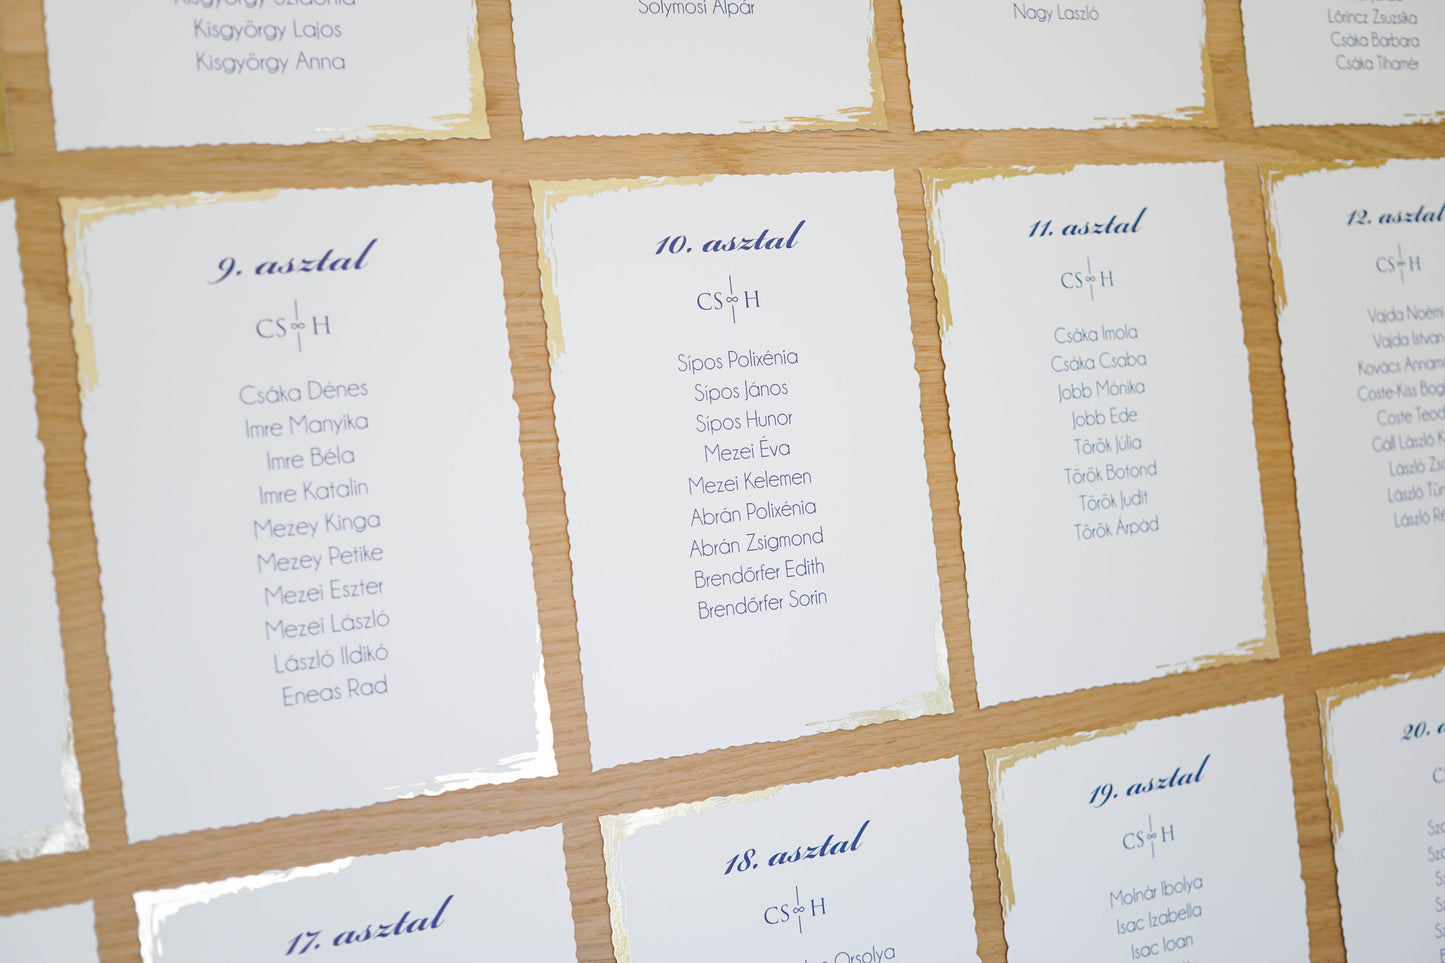 Kisgyörgy Szidónia
Kisgyörgy Lajos
Kisgyörgy Anna
Solymosi Alpár
Nagy László
Lőrincz Zsuzsika
Csáka Barbara
Csáka Tihamér
9. asztal
CS ∞ H
Csáka Dénes
Imre Manyika
Imre Béla
Imre Katalin
Mezey Kinga
Mezey Petike
Mezei Eszter
Mezei László
László Ildikó
Eneas Rad
10. asztal
CS ∞ H
Sípos Polixénia
Sípos János
Sípos Hunor
Mezei Éva
Mezei Kelemen
Abrán Polixénia
Abrán Zsigmond
Brendőrfer Edith
Brendőrfer Sorin
11. asztal
CS ∞ H
Csáka Imola
Csáka Csaba
Jobb Mónika
Jobb Ede
Török Júlia
Török Botond
Török Judit
Török Árpád
12. asztal
CS ∞ H
Vajda Noémi
Vajda Istvan
Kovács
Coste-Kiss
Coste
Gáll László
László
László
László
17. asztal
18. asztal
CS ∞ H
Orsolya
19. asztal
CS ∞ H
Molnár Ibolya
Isac Izabella
Isac Ioan
20.